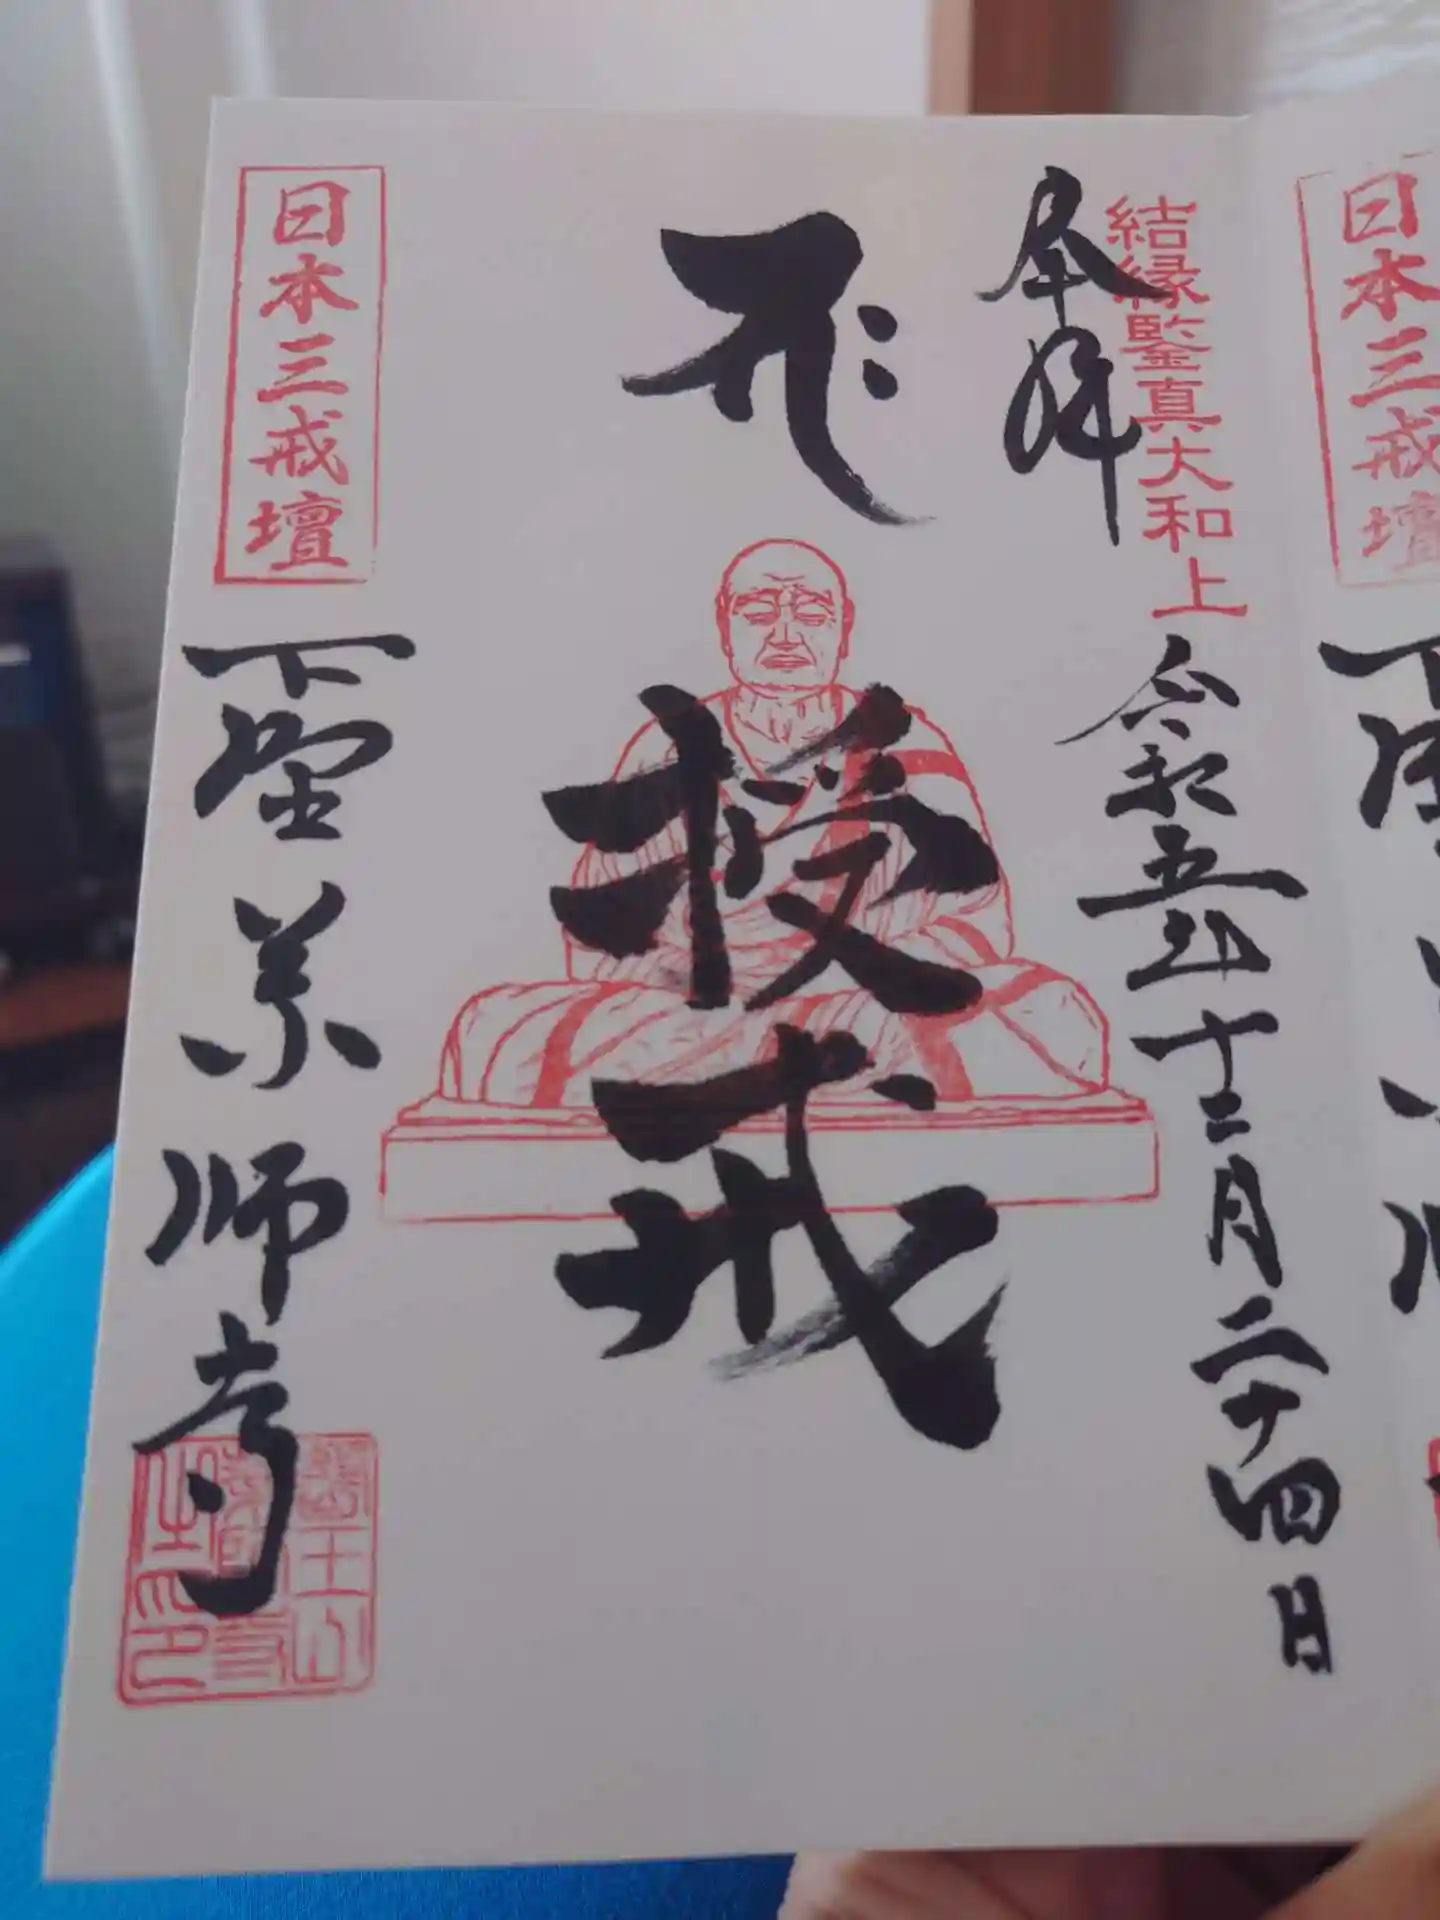 日本三戒壇
結縁鑑真大和上
奉拝
令和五年十二月二十四日
授戒
日本三戒壇
下野薬師寺